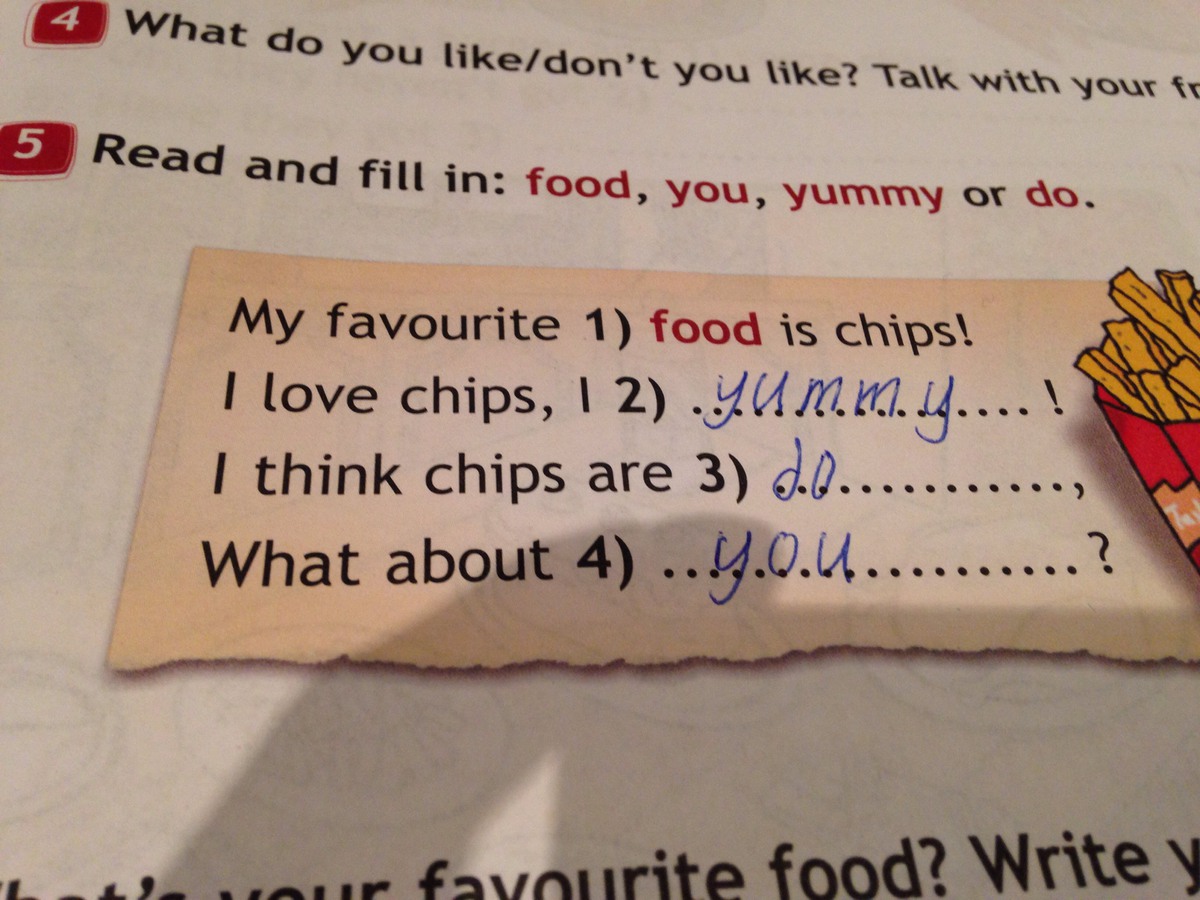 4 What do you like/don't you like? Talk with your fr
5 Read and fill in: food, you, yummy or do.
My favourite 1) food is chips!
I love chips, I 2) .yummy....!
I think chips are 3) do............,
What about 4) ...you...........?
hat's your favourite food? Write y